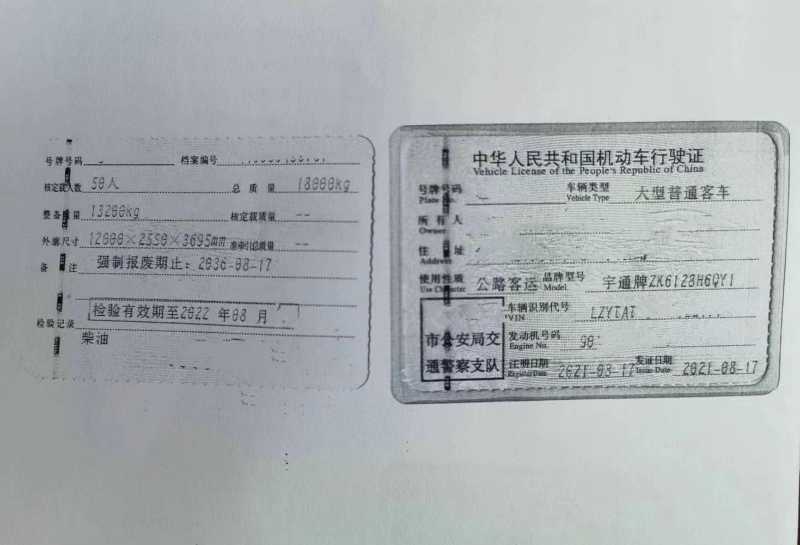 号牌号码 档案编号
核定载人数 50人 总质量 18000kg
整备质量 13200kg 核定载质量 --
外廓尺寸 12000×2550×3695mm 准牵引总质量 --
备注 强制报废期止：2036-08-17
检验有效期至2022年08月
检验记录
柴油
中华人民共和国机动车行驶证
Vehicle License of the People's Republic of China
号牌号码 车辆类型 大型普通客车
Plate No. Vehicle Type
所有人
Owner
住址
Address
使用性质 公路客运 品牌型号 宇通牌ZK6128H6QY1
Use Character Model
车辆识别代号 LZYTAT
VIN
市公安局交
通警察支队
发动机号码 90
Engine No.
注册日期 2021-08-17 发证日期 2021-08-17
Register Date Issue Date